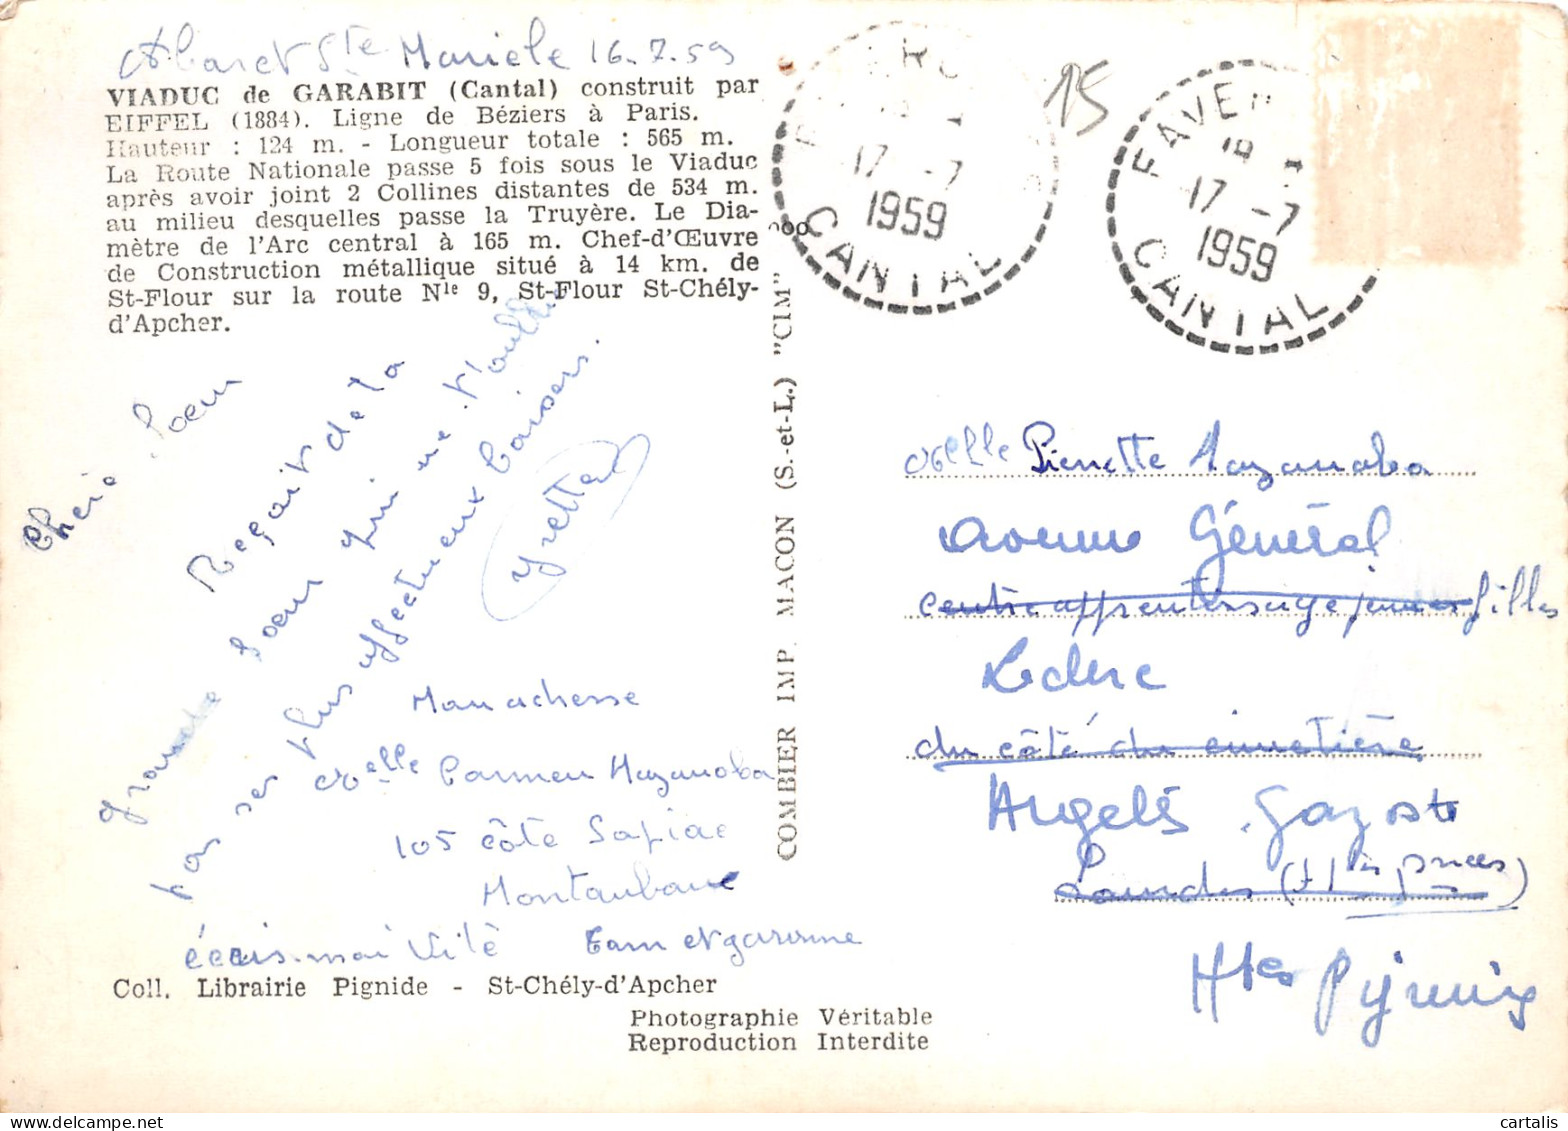 Albaret Ste Mariele 16.7.59
VIADUC de GARABIT (Cantal) construit par
EIFFEL (1884). Ligne de Béziers à Paris.
Hauteur : 124 m. - Longueur totale : 565 m.
La Route Nationale passe 5 fois sous le Viaduc
après avoir joint 2 Collines distantes de 534 m.
au milieu desquelles passe la Truyère. Le Dia-
mètre de l'Arc central à 165 m. Chef-d'Œuvre
de Construction métallique situé à 14 km. de
St-Flour sur la route Nle 9, St-Flour St-Chély-
d'Apcher.
Chère Soeur
Reçait de la
grande soeur qui ne t'oublie
pas ses plus affectueux baisers.
Yvette
Mon adresse
Melle Carmen Mazanoba
105 côte Sapiac
Montauban
écris-moi vite Tarn et garonne
Coll. Librairie Pignide - St-Chély-d'Apcher
Photographie Véritable
Reproduction Interdite
COMBIER IMP. MACON (S.-et-L.) "CIM"
17 -7
1959
CANTAL
15
FAVE
18
17 -7
1959
CANTAL
Melle Pierrette Mazanoba
Avenue Général
centre apprentissage jeunes filles
Leclerc
du côté du cimetière
Argelès Gazost
Lourdes (Htes Pnees)
Htes Pyrénées